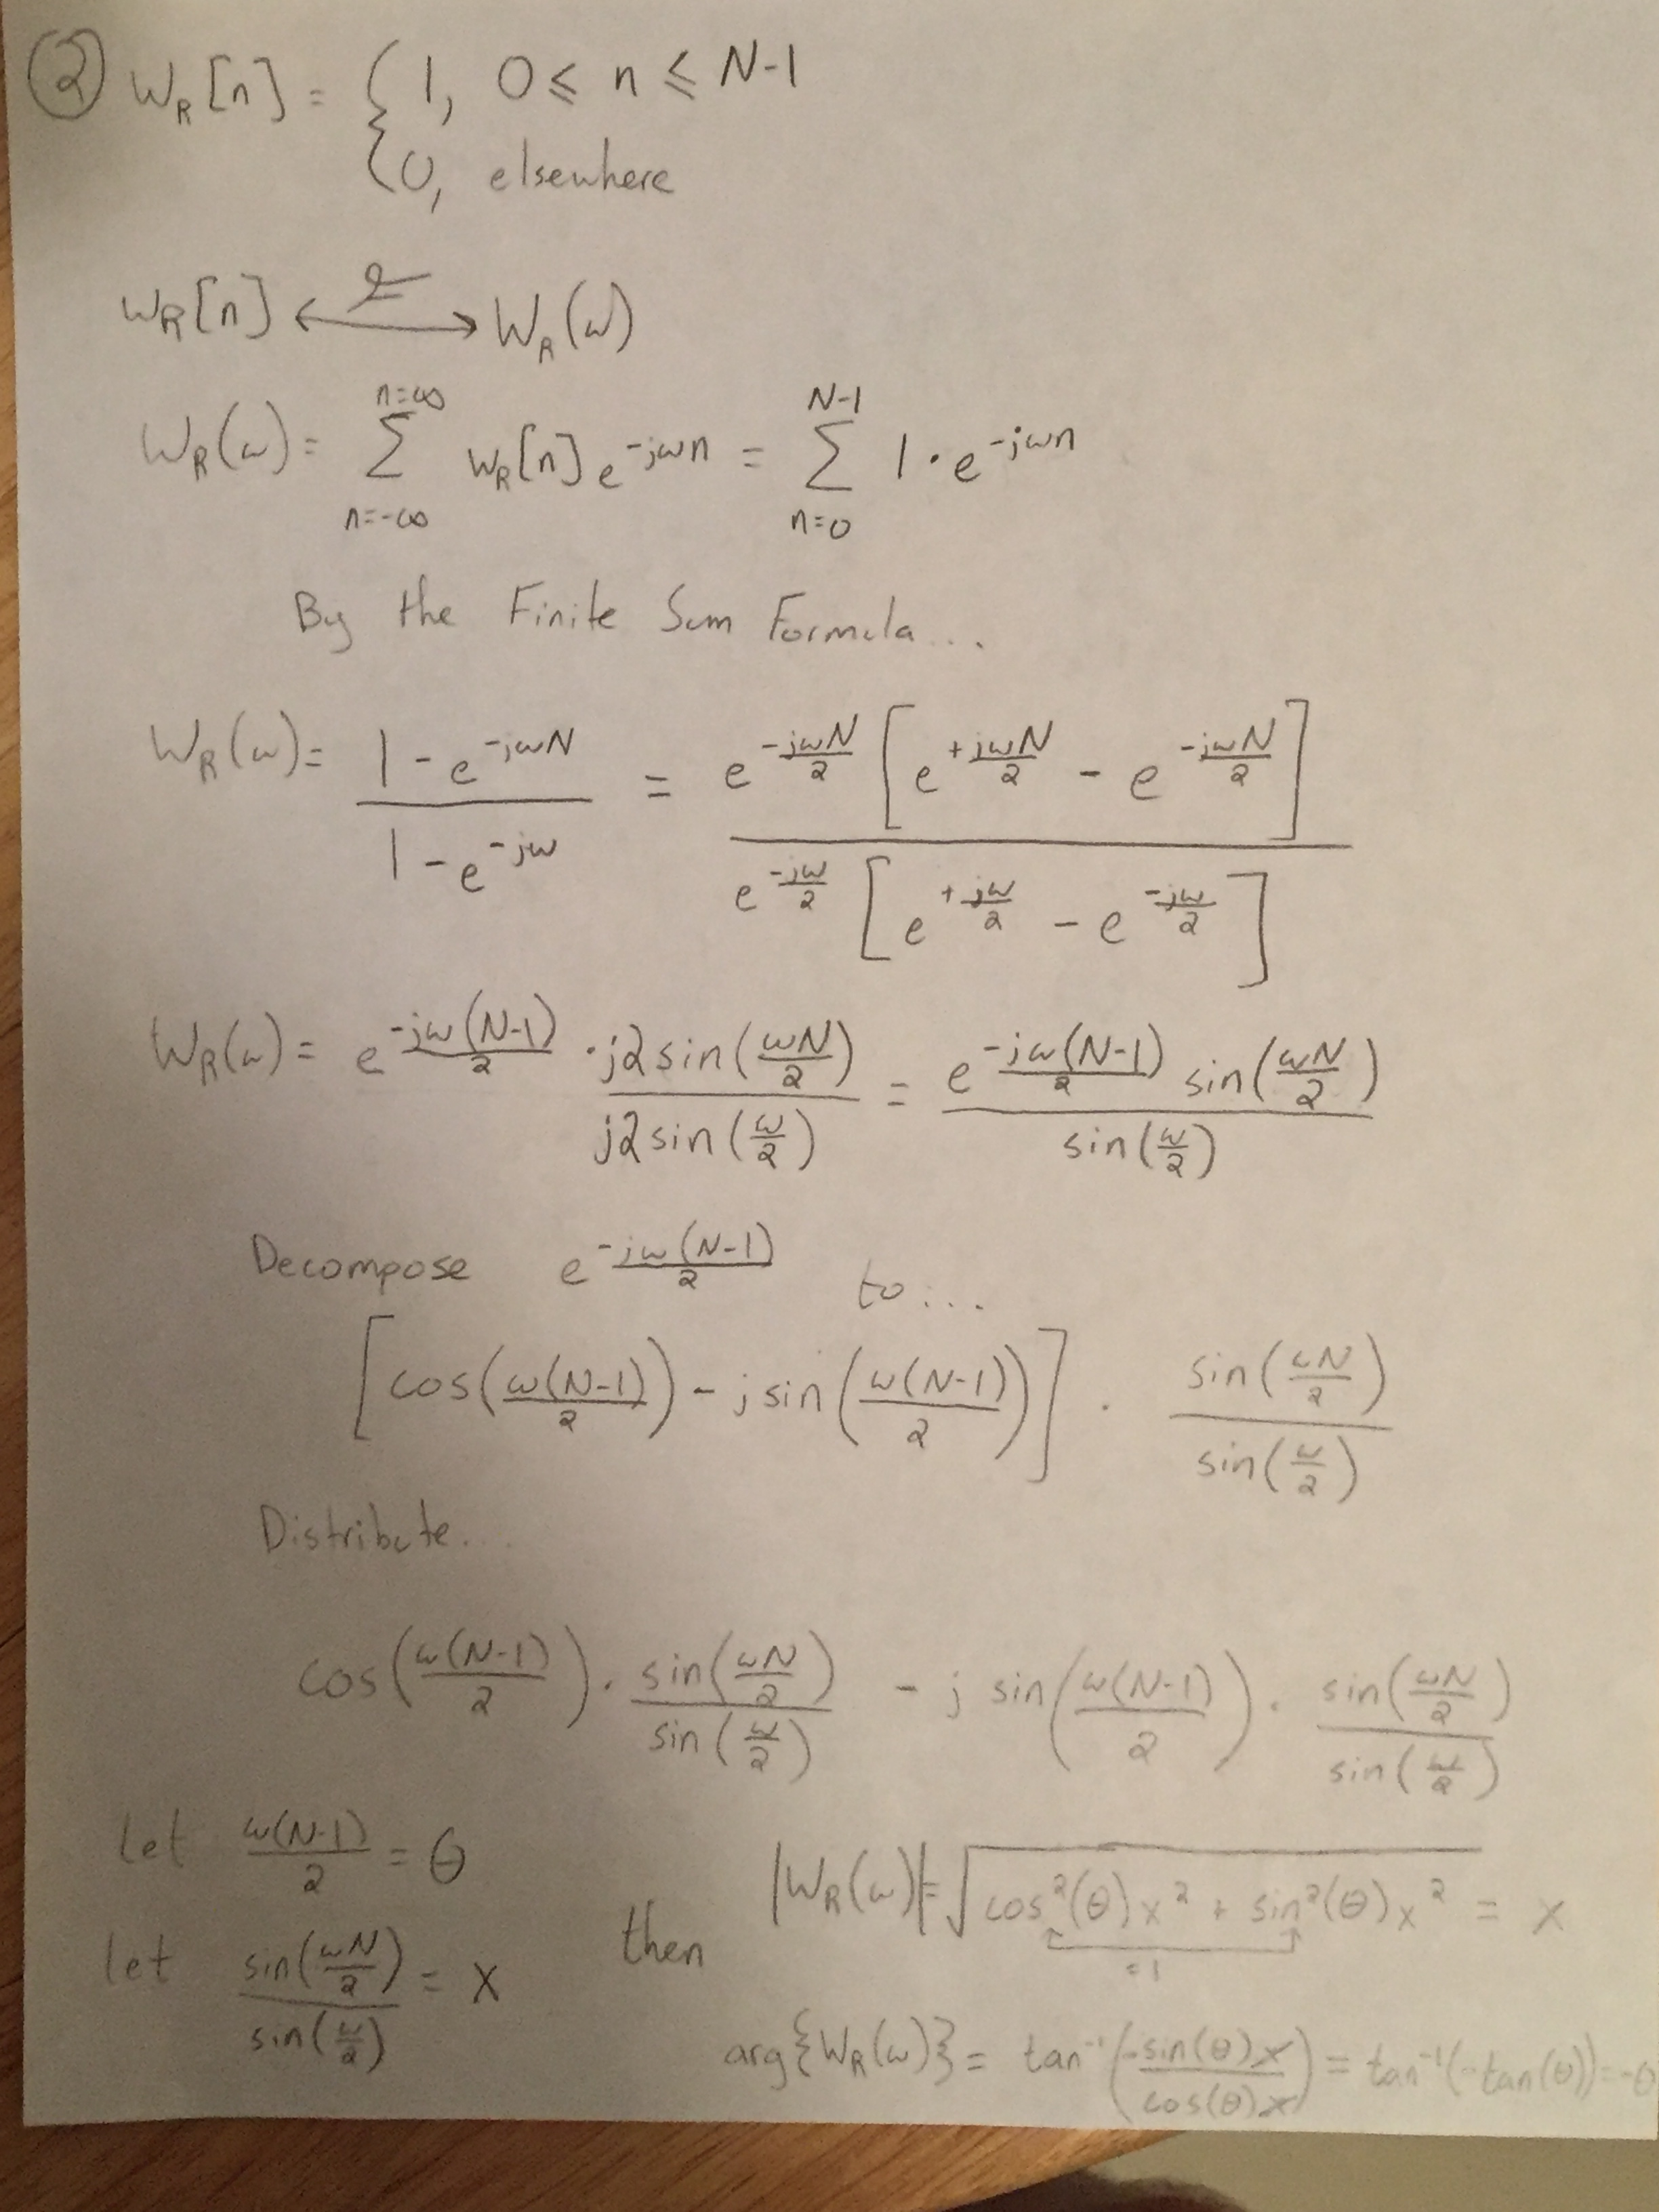 ② W_R[n] = { 1, 0 ≤ n ≤ N-1
0, elsewhere
W_R[n] ⟷^ℱ W_R(ω)
W_R(ω) = Σ_{n=-∞}^{n=∞} W_R[n] e^{-jωn} = Σ_{n=0}^{N-1} 1·e^{-jωn}
By the Finite Sum Formula...
W_R(ω) = (1 - e^{-jωN}) / (1 - e^{-jω}) = e^{-jωN/2} [e^{+jωN/2} - e^{-jωN/2}] / e^{-jω/2} [e^{+jω/2} - e^{-jω/2}]
W_R(ω) = e^{-jω(N-1)/2} · j2sin(ωN/2) / j2sin(ω/2) = e^{-jω(N-1)/2} sin(ωN/2) / sin(ω/2)
Decompose e^{-jω(N-1)/2} to...
[cos(ω(N-1)/2) - j sin(ω(N-1)/2)] · sin(ωN/2) / sin(ω/2)
Distribute...
cos(ω(N-1)/2) · sin(ωN/2) / sin(ω/2) - j sin(ω(N-1)/2) · sin(ωN/2) / sin(ω/2)
let ω(N-1)/2 = θ
let sin(ωN/2) / sin(ω/2) = x
then |W_R(ω)| = √(cos²(θ)x² + sin²(θ)x²) = x
= 1
arg{W_R(ω)} = tan⁻¹(-sin(θ)x / cos(θ)x) = tan⁻¹(-tan(θ)) = -θ